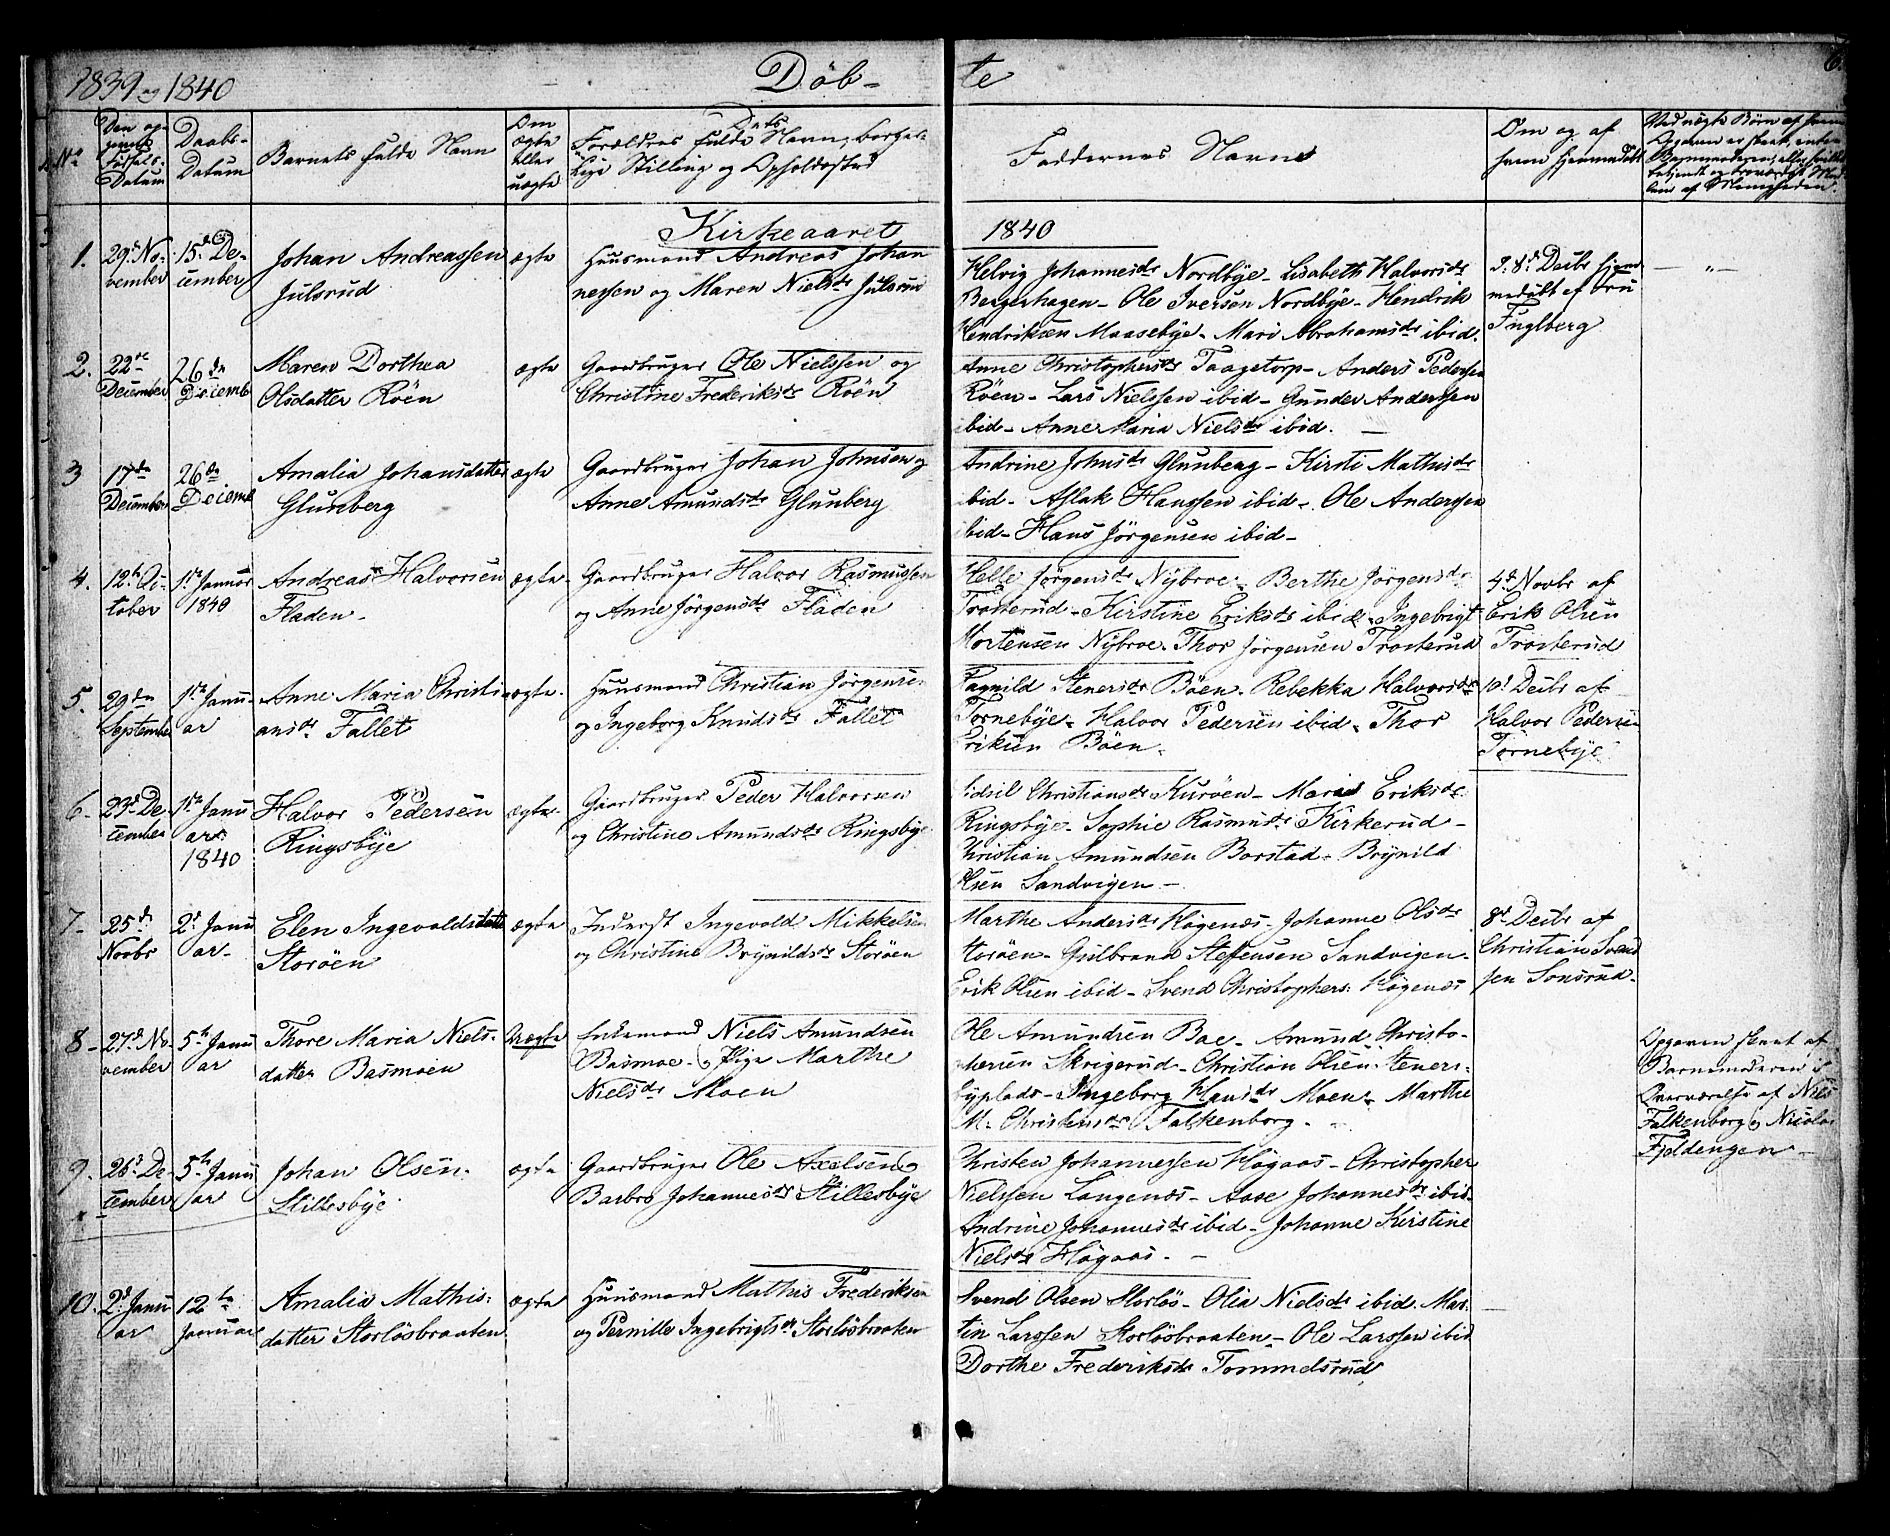 1839 og 1840
Döb-
te
6.
No
Den op-
givne
Födsels-
Datum
Daabs-
Datum
Barnets fulde Navn
Om
ægte
eller
uægte
Dets
Foreldres fulde Navn, borger-
lige Stilling og Opholdssted
Faddernes Navne
Om og af
hvem hjemmedöbt
Ved uægte Börn af hvem
Opgaven er skeet, enten
Barnemoderen, eller hvilket
bekjendt og troværdigt Med-
lem af Menigheden.
Kirkeaaret
1840
1.
29d No-
vember
15d De-
cember
Johan Andreassen
Julsrud
ægte
Huusmand Andreas Johan
nessen og Maren Nielsdr Julsrud
Helvig Johannesdr Nordbye - Lisabeth Halvorsdr
Bergerhagen - Ole Iversen Nordbye - Hendrik
Hendriksen Maasebye - Mari Abrahamsdr ibid.
D. 8d Decbr hjem
medöbt af Fru
Fuglberg
— " —
2.
22de
December
26de
Decemb
Maren Dorthea
Olsdatter Röen
ægte
Gaardbruger Ole Nielssen og
Christine Frederiksdr Röen
Anne Christophersdr Taagetorp - Anders Pedersen
Röen - Lars Nielssen ibid - Gunder Anderssen
ibid - Anne Maria Nielsdr ibid. —
3
17de
December
26de
Decemb
Amalia Johansdatter
Glunberg
ægte
Gaardbruger Johan Johnsen og
Anne Amundsdr Glunberg
Andrine Johnsdr Glunberg - Kirsti Mathisdr
ibid - Aslak Hanssen ibid - Ole Anderssen
ibid - Hans Jörgensen ibid -
4.
12te Oc-
tober
1ste Januar
1840
Andreas Halvorsen
Fladen -
ægte
Gaardbruger Halvor Rasmussen
og Anne Jörgensdr Fladen
Helle Jörgensdr Nÿbroe - Berthe Jörgensdr
Trosterud - Kirstine Eriksdr ibid - Ingebrigt
Mortensen Nÿbroe - Thor Jörgensen Trosterud
4d Novbr af
Erik Olsen
Trosterud
5.
29de
September
1ste Janu-
ar
Anne Maria Christi-
ansdr Fallet
ægte.
Huusmand Christian Jörgensen
og Ingeborg Knudsdr Fallet
Ragnild Stenersdr Böen. Rebekka Halvorsdr
Tornebÿe - Halvor Pedersen ibid - Thor
Eriksen Böen -
10d Decbr af
Halvor Pedersen
Tornebÿe
6.
23d De-
cember
1ste Janu
ar
1840
Halvor Pedersen
Ringsbÿe
ægte.
Gaardbruger Peder Halvorsen
og Christine Amundsdr Ringsbÿe
Sidsil Christiansdr Kuröen - Maria Eriksdr
Ringsbÿe - Sophie Rasmusdr Kirkerud -
Christian Amundsen Borstad - Brÿnild
Olsen Sandvigen -
7.
25d
Novbr
2d Janu
ar.
Elen Ingevoldsdatter
Storöen
ægte
Inderst Ingevold Mikkelsen
og Christine Brÿnildsdr Storöen
Marthe Andersdr Högenæs - Johanne Olsdr
Storöen - Gulbrand Steffensen Sandvigen -
Erik Olsen ibid - Svend Christophers: Högenæs
8d Decbr af
Christian Svend
sen Sonsrud -
8.
27d No-
vember
5te Janu
ar
Thore Maria Niels-
datter Basmoen
Uægte
Enkemand Niels Amundsen
Basmoe - og Pige Marthe
Nielsdr Moen
Ole Amundsen Bae - Amund Christo-
phersen Skrigerud - Christian Olsen Steners-
bÿplads - Ingeborg Hansdr Moen - Marthe
M: Christensdr Falkenborg. -
Opgaven skeet af
Barnemoderen i
Overværelse af Niels
Falkenborg og Nicolai
Fjeldengen -
9.
26d De-
cember
5te Janu
ar
Johan Olsen
Stillesbÿe
ægte
Gaardbruger Ole Axelsen og
Barbro Johannesdr Stillesbÿe
Christen Johannessen Högaas - Christopher
Nielssen Langenæs - Aase Johannesdr ibid.
Andrine Johannesdr ibid - Johanne Kirstine
Nielsdr Högaas. -
10.
2d Janu
ar
12te
Januar
Amalia Mathis-
datter Storlösbraaten
ægte
Huusmand Mathis Frederiksen
og Pernille Ingebrigtsdr Storlösbraaten
Svend Olsen Storlös - Olia Nielsdr ibid. Mar-
tin Larssen Storlösbraaten - Ole Larssen ibid
Dorthe Frederiksdr Tommelsrud